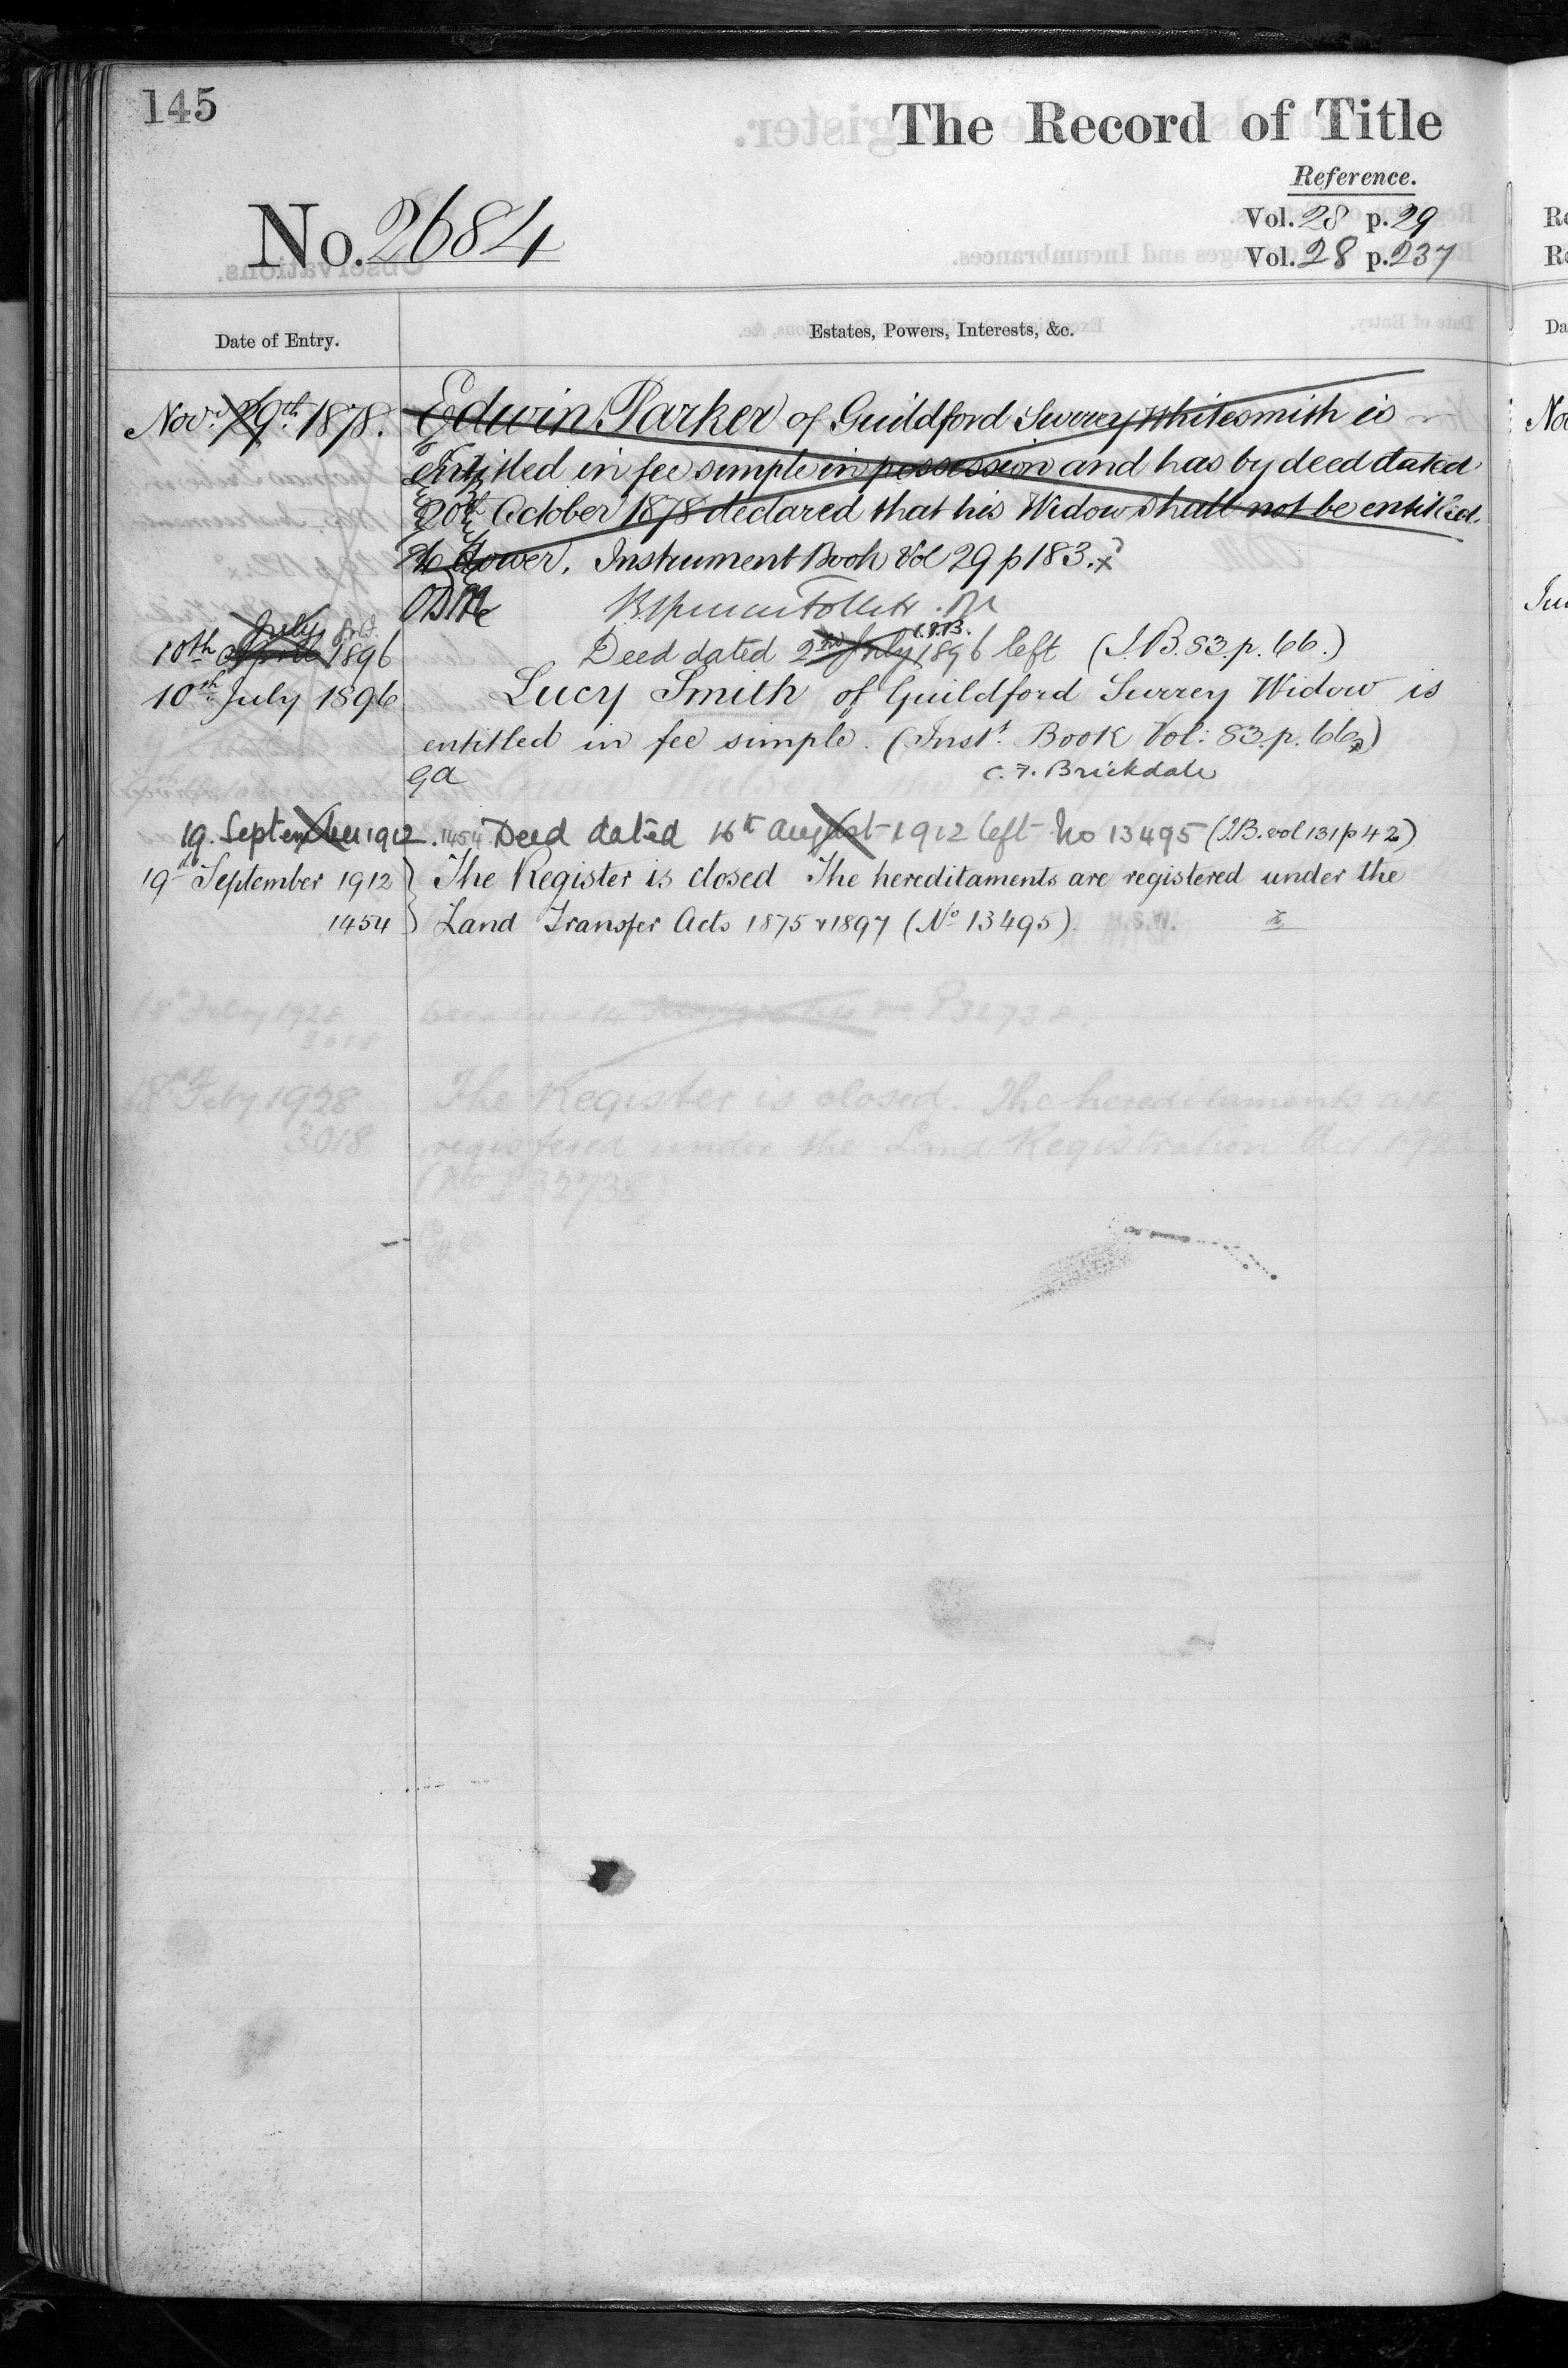 145
The Record of Title
Reference.
No. 2684
Vol. 28 p. 29
Vol. 28 p. 237
Date of Entry.
Estates, Powers, Interests, &c.
Novr. 29th. 1878.
Edwin Parker of Guildford Surrey Whitesmith is
entitled in fee simple in possession and has by deed dated
20th October 1878 declared that his Widow shall not be entitled
to dower. Instrument Book Vol 29 p 183.
10th July April 1896
Deed dated 2nd July 1896 left (I.B. 83. p. 66.)
C.F.B.
10th July 1896
Lucy Smith of Guildford Surrey Widow is
entitled in fee simple. (Inst. Book Vol: 83. p. 66)
C. F. Brickdale
19. September 1912. 1454 Deed dated 16th August 1912 left No 13495 (I.B. vol 131 p 42)
19th September 1912
The Register is closed The hereditaments are registered under the
1454
Land Transfer Acts 1875 & 1897 (No 13495). H.S.W.
18th Feby 1928
3018
18th Feby 1928
The Register is closed. The hereditaments are
3018
registered under the Land Registration Act
(No P 32738)